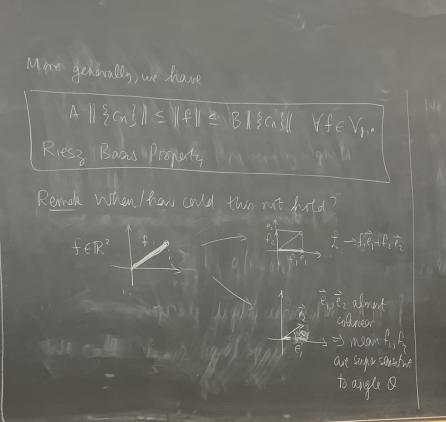 More generally, we have
A ‖{cn}‖ ≤ ‖f‖ ≤ B ‖{cn}‖ ∀f ∈ V
Riesz Basis Property
Remark When/how could this not hold?
f∈ℝ²
f
e₂
f₂
f₁ e₁
→ f₁e⃗₁+f₂e⃗₂
e⃗₂
e⃗₁
e⃗₁, e⃗₂ almost
colinear
⇒ mean f₁, f₂
are super sensitive
to angle θ